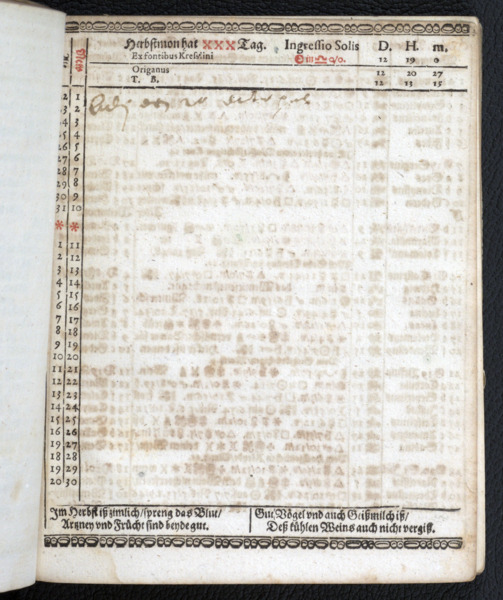 Herbstmon hat XXX Tag. Ingressio Solis D. H. m.
Ex fontibus Kreslini ☉ in ♎ 0/0. 12 19 0
Origanus 12 20 27
T. B. 12 13 15
Alt. New
2 1
3 2
4 3
5 4
26 5
27 6
28 7
29 8
30 9
31 10
* *
1 11
2 12
3 13
4 14
5 15
6 16
7 17
8 18
9 19
10 20
11 21
12 22
13 23
14 24
15 25
16 26
17 27
18 28
19 29
20 30
Im Herbst iß zimlich/spreng das Blut/
Artzney vnd Frücht sind beyde gut.
Gut Vögel vnd auch Geißmilch iß/
Deß kühlen Weins auch nicht vergiß.